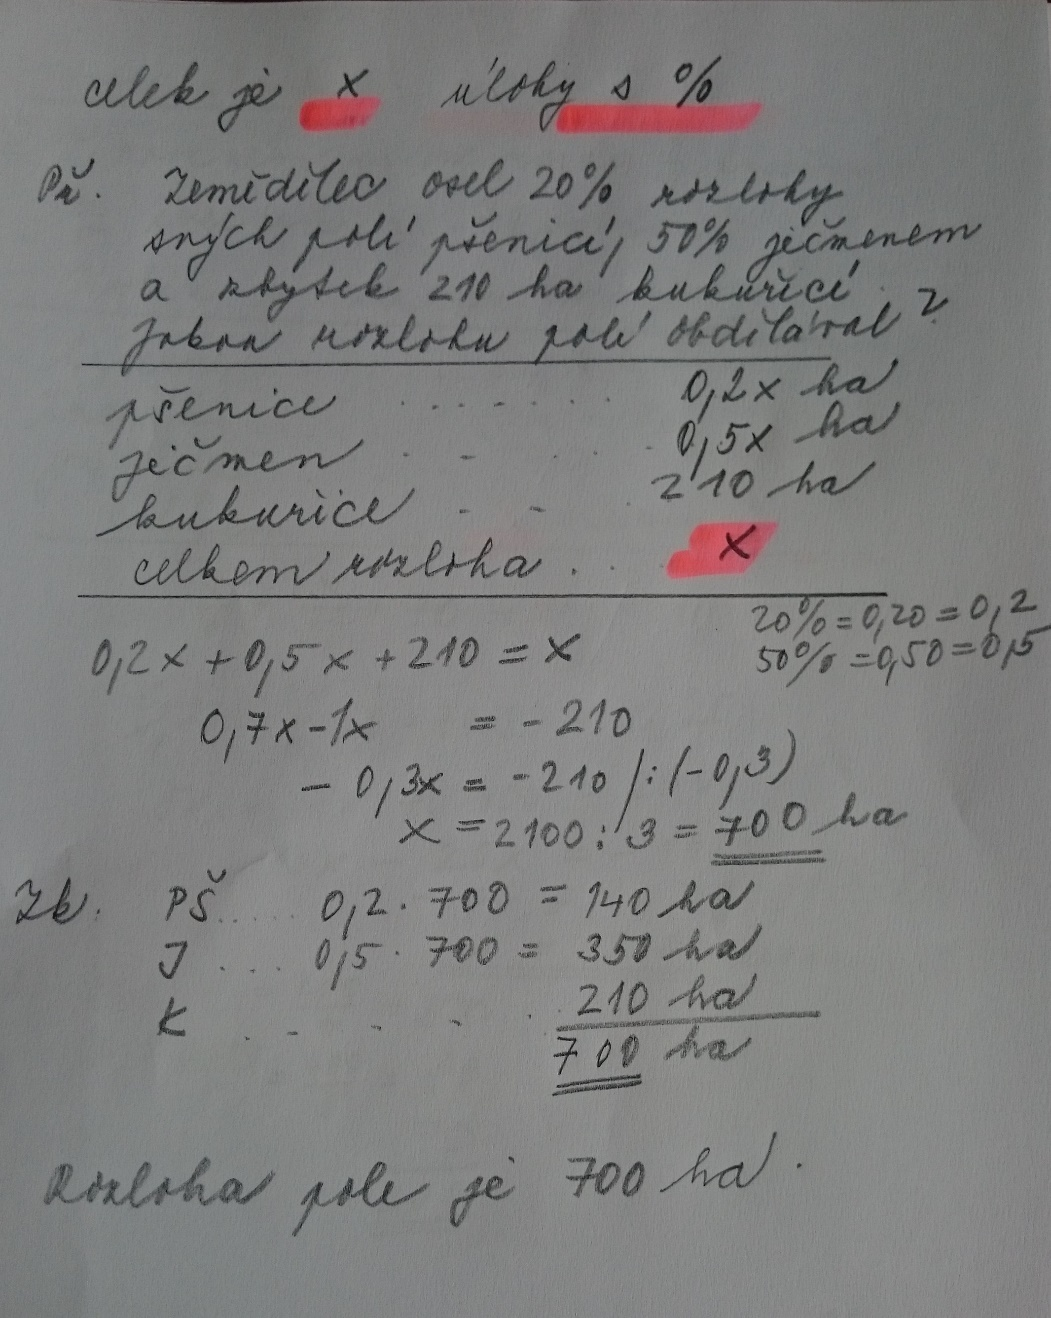 celek je x úlohy s %
Př. Zemědělec osel 20% rozlohy
svých polí pšenicí, 50% ječmenem
a zbytek 210 ha kukuřicí.
Jakou rozlohu polí obdělával?
pšenice ....... 0,2x ha
ječmen . - . . . 0,5x ha
kukuřice . - - . 210 ha
celkem rozloha . . . x
20% = 0,20 = 0,2
50% = 0,50 = 0,5
0,2x + 0,5x + 210 = x
0,7x - 1x = - 210
- 0,3x = - 210 /: (-0,3)
x = 2100 : 3 = 700 ha
Zk. PŠ..... 0,2 . 700 = 140 ha
J .... 0,5 . 700 = 350 ha
K . - - - . 210 ha
700 ha
Rozloha pole je 700 ha.